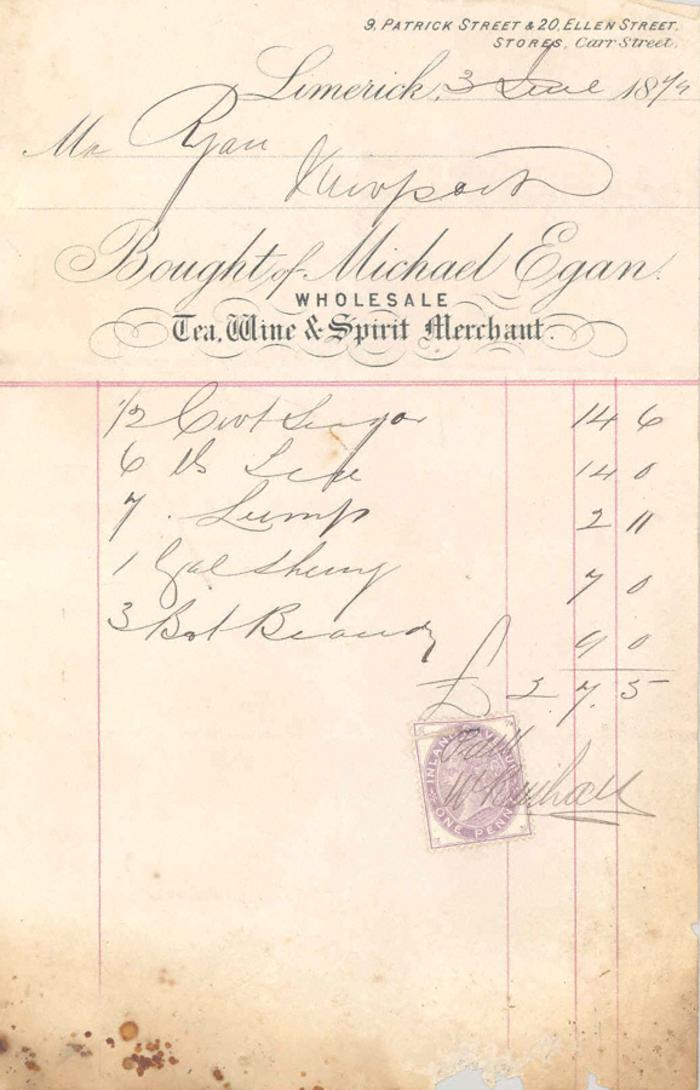 9, PATRICK STREET & 20, ELLEN STREET.
STORES, Carr Street.
Limerick, 3 June 1879
Mr Ryan
Newport
Bought of Michael Egan.
WHOLESALE
Tea, Wine & Spirit Merchant.
1/2 Cwt Sugar 14 6
6 lb Tea 14 0
7 . Lump 2 11
1 Gal Sherry 7 0
3 Bot Brandy 9 0
£ 2.7.5
Paid
INLAND REVENUE
ONE PENNY